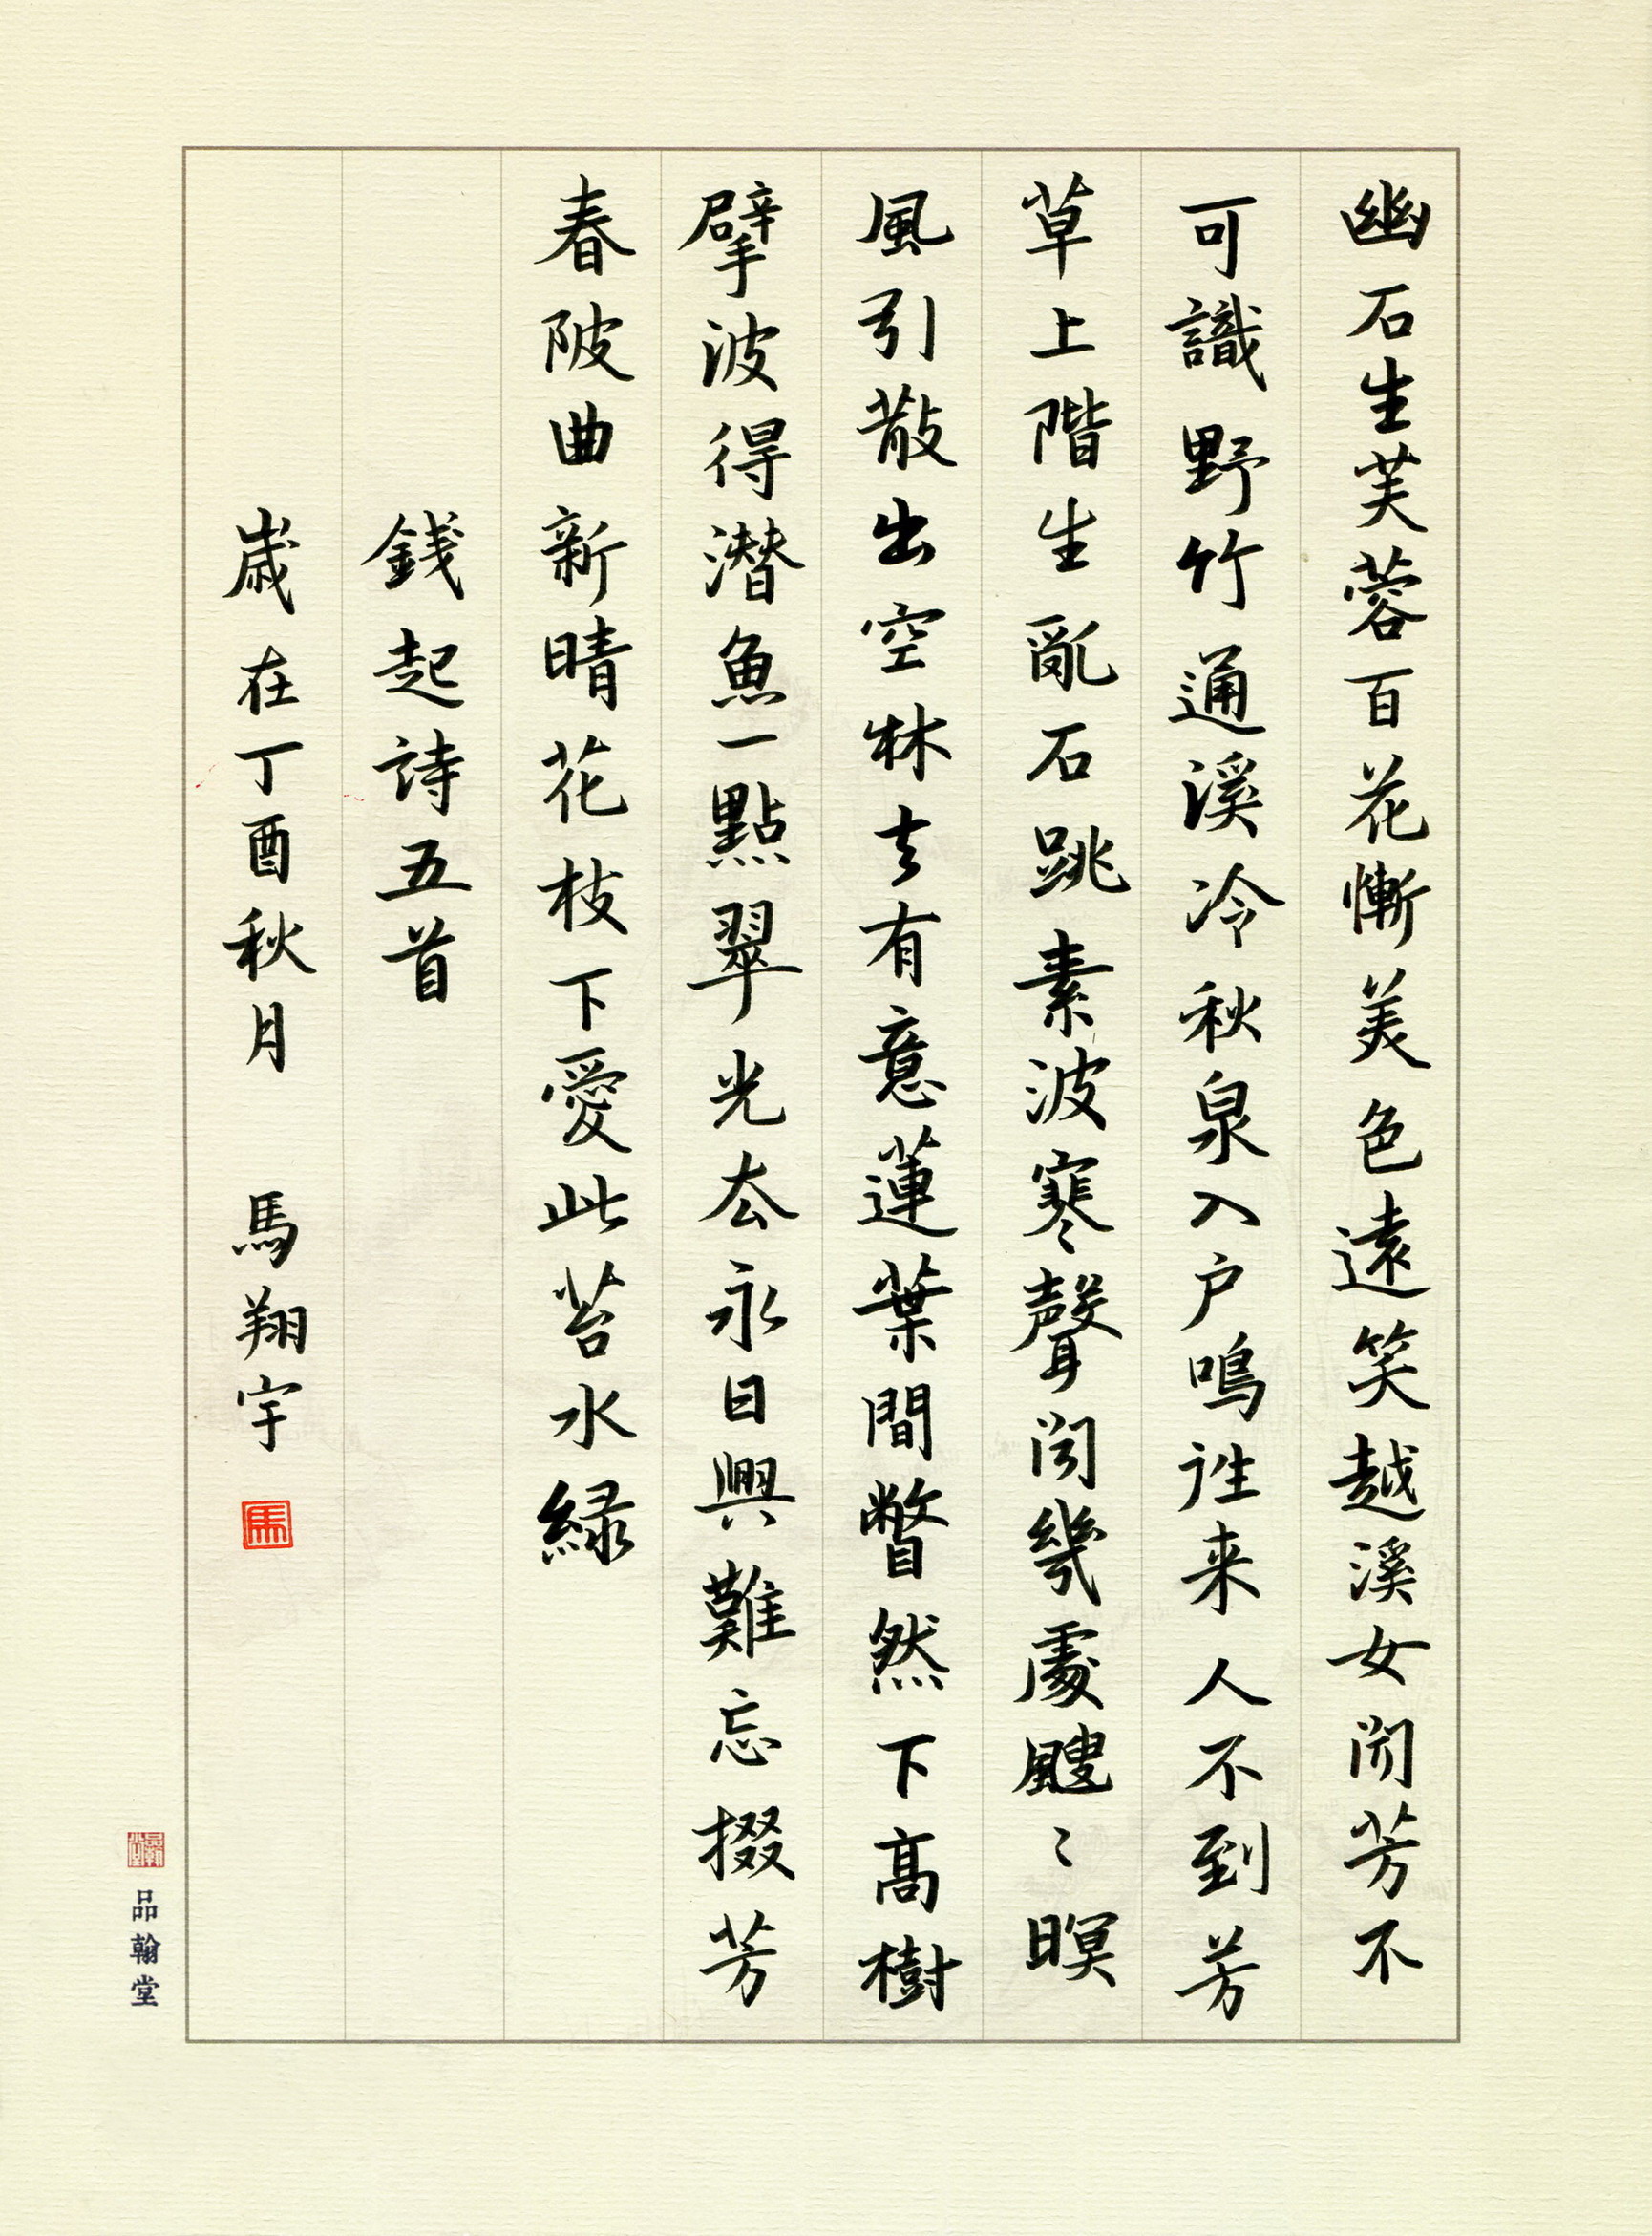 幽石生芙蓉百花慚美色遠笑越溪女聞芳不
可識野竹通溪冷秋泉入户鳴亂来人不到芳
草上階生亂石跳素波寒聲聞幾處颼〻暝
風引散出空林去有意蓮葉間瞥然下高樹
擘波得潛魚一點翠光去永日興難忘掇芳
春陂曲新晴花枝下愛此苔水緑
錢起詩五首
歲在丁酉秋月 馬翔宇
馬
品翰堂